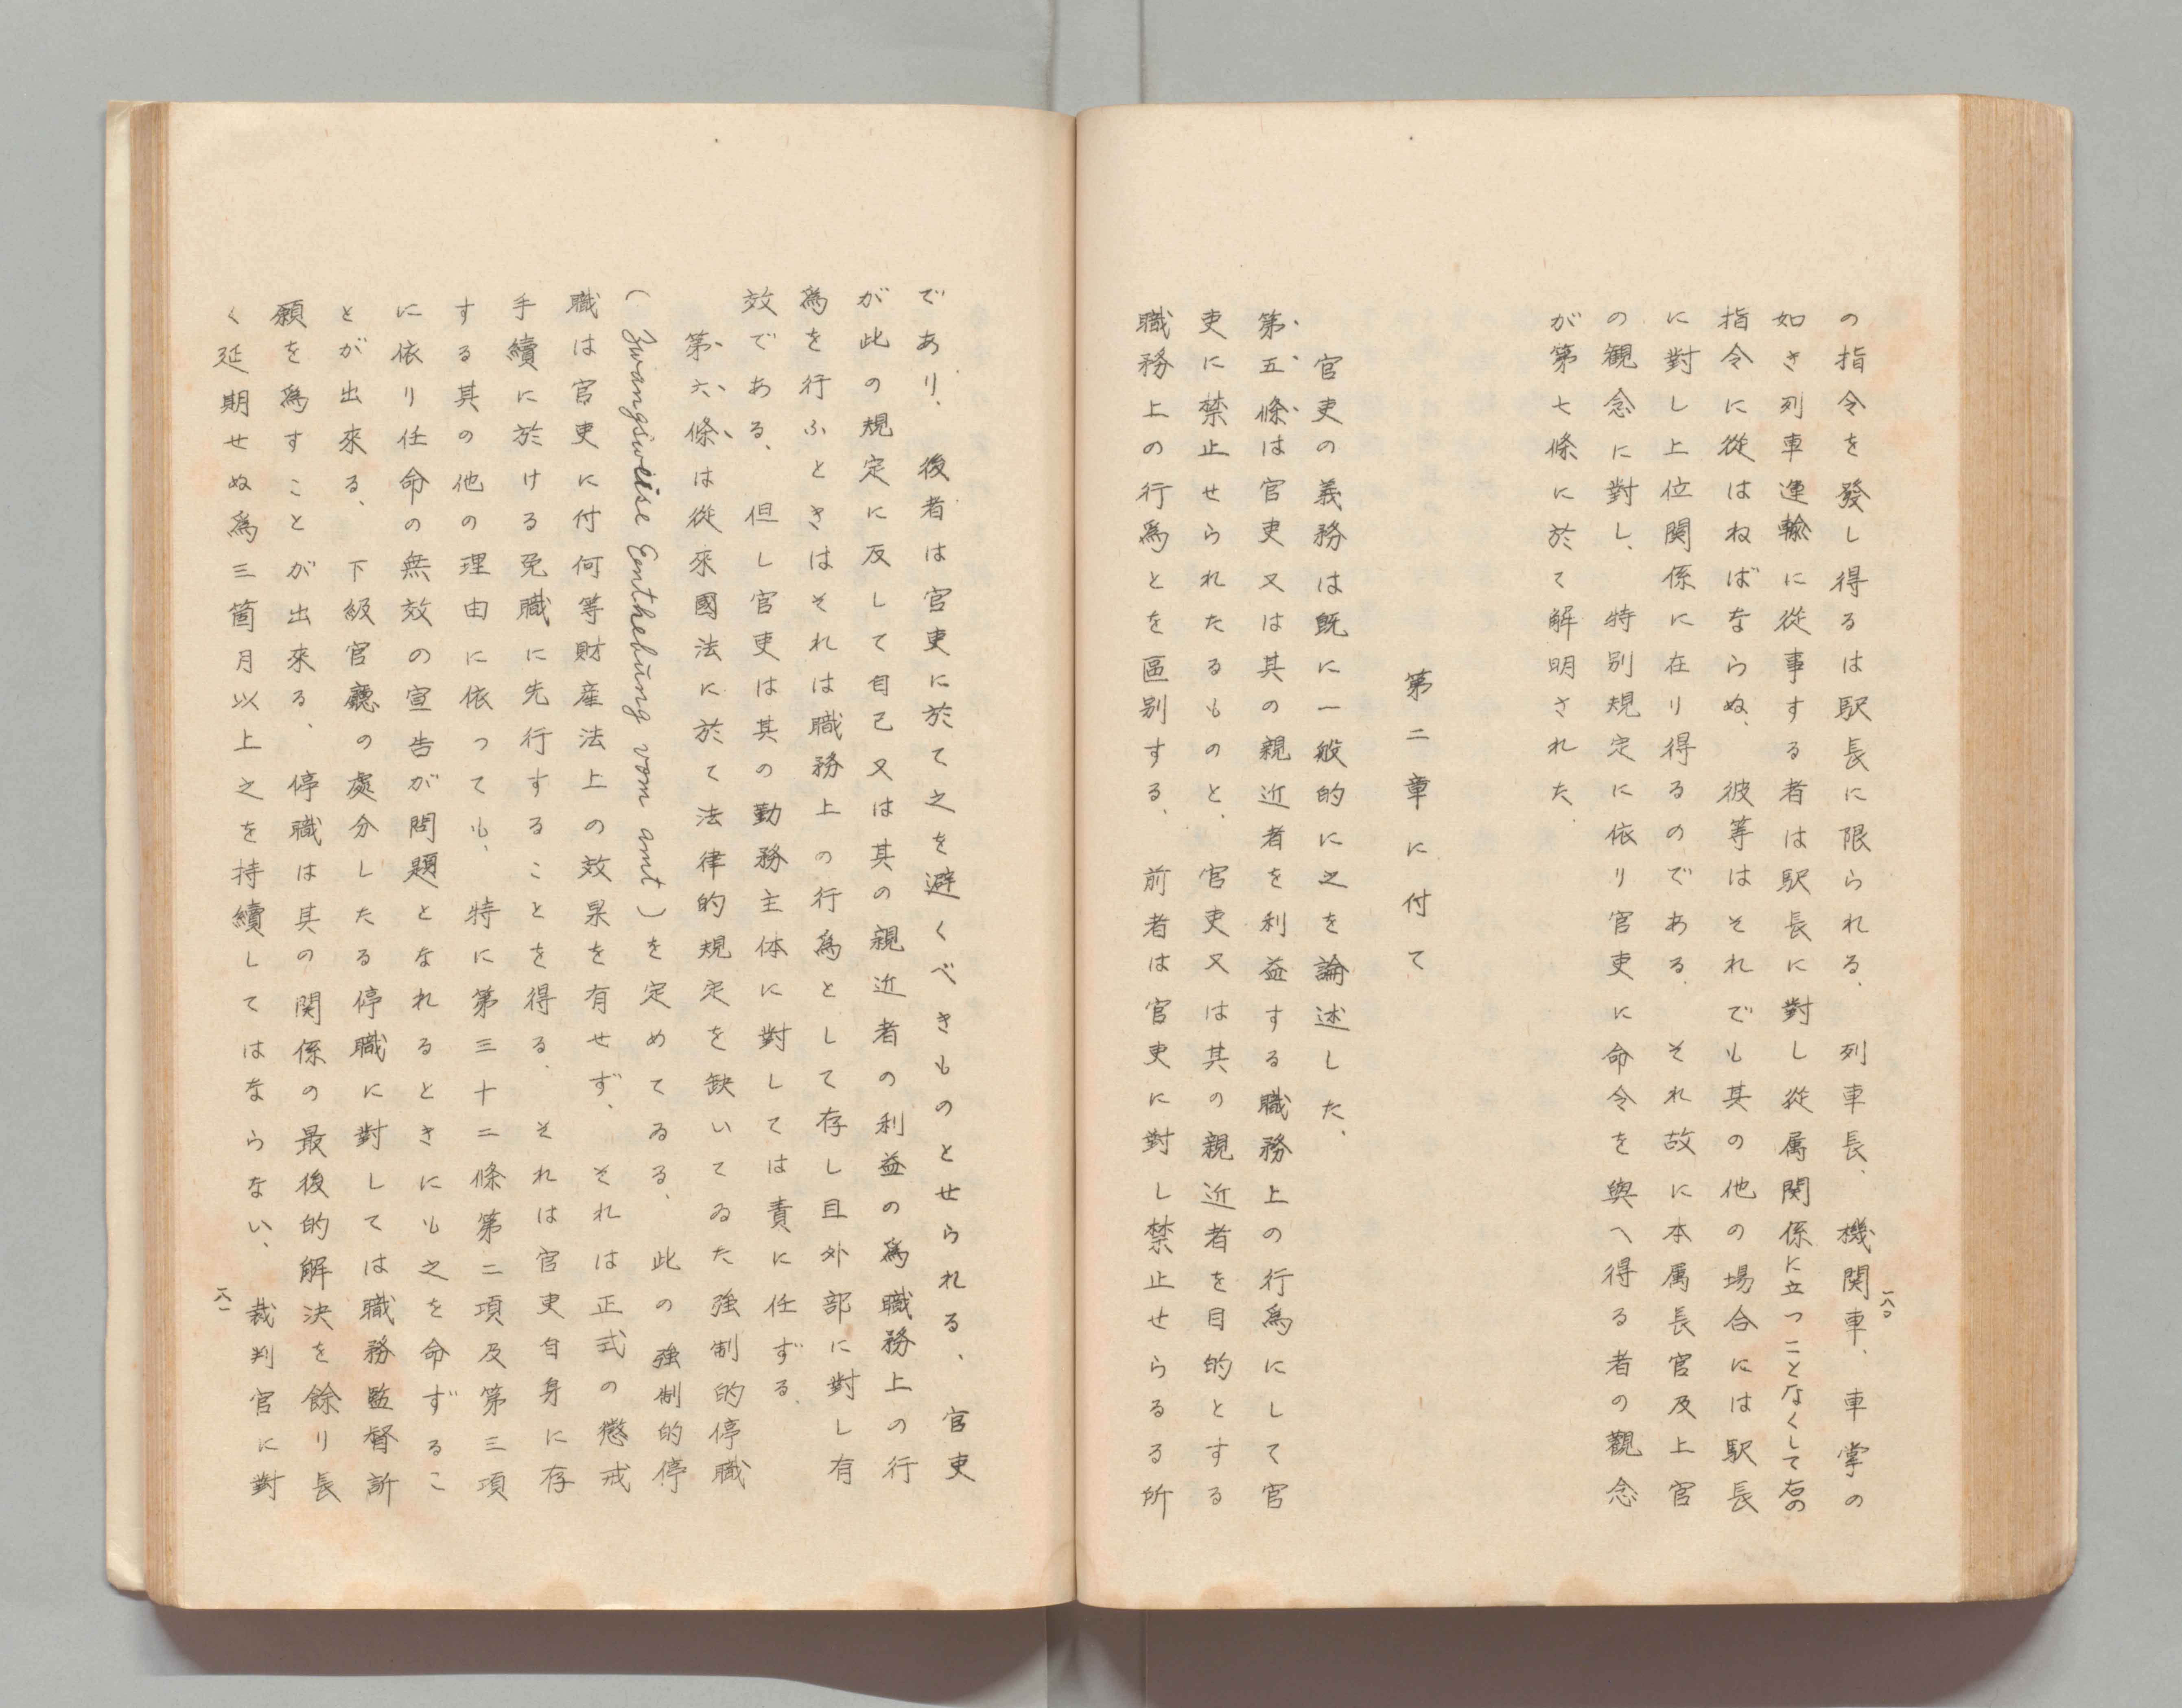 の指令を發し得るは駅長に限られる、列車長、機関車、車掌の
如き列車運輸に從事する者は駅長に對し從属関係に立つことなくして右の
指令に從はねばならぬ、彼等はそれでも其の他の場合には駅長
に對し上位関係に在り得るのである、それ故に本属長官及上官
の観念に對し、特別規定に依り官吏に命令を與へ得る者の觀念
が第七條に於て解明された、
第二章に付て
官吏の義務は既に一般的に之を論述した、
第五條は官吏又は其の親近者を利益する職務上の行爲にして官
吏に禁止せられたるものと、官吏又は其の親近者を目的とする
職務上の行爲とを區別する、前者は官吏に對し禁止せらるる所
一八〇
であり、後者は官吏に於て之を避くべきものとせられる、官吏
が此の規定に反して自己又は其の親近者の利益の爲職務上の行
爲を行ふときはそれは職務上の行爲として存し且外部に對し有
效である、但し官吏は其の勤務主体に對しては責に任ずる、
第六條は從來國法に於て法律的規定を缺いてゐた強制的停職
(Zwangsweise Eenthebūng vom amt)を定めてゐる、此の強制的停
職は官吏に付何等財産法上の效果を有せず、それは正式の懲戒
手續に於ける免職に先行することを得る、それは官吏自身に存
する其の他の理由に依つても、特に第三十二條第二項及第三項
に依り任命の無效の宣告が問題となれるときにも之を命ずるこ
とが出來る、下級官廳の處分したる停職に對しては職務監督訴
願を爲すことが出來る、停職は其の関係の最後的解決を餘り長
く延期せぬ爲三箇月以上之を持續してはならない、裁判官に對
一八一